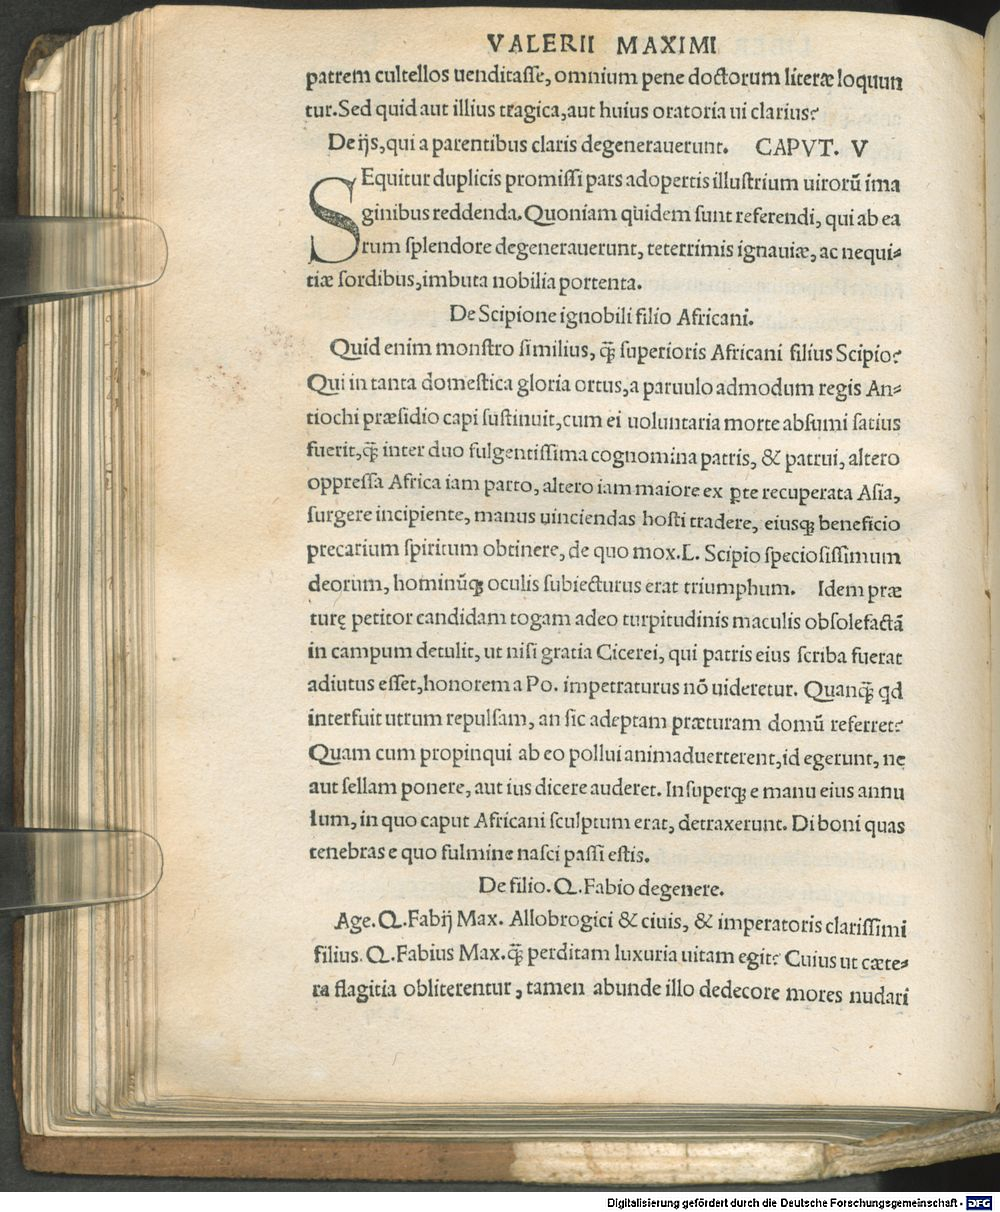 VALERII MAXIMI
patrem cultellos uenditaſſe, omnium pene doctorum literæ loquun
tur. Sed quid aut illius tragica, aut huius oratoria ui clarius?
De ijs, qui a parentibus claris degenerauerunt. CAPVT. V
SEquitur duplicis promiſſi pars adopertis illuſtrium uirorũ ima
ginibus reddenda. Quoniam quidem ſunt referendi, qui ab ea
rum ſplendore degenerauerunt, teterrimis ignauiæ, ac nequi-
tiæ ſordibus, imbuta nobilia portenta.
De Scipione ignobili filio Africani.
Quid enim monſtro ſimilius, q̃ ſuperioris Africani filius Scipio?
Qui in tanta domeſtica gloria ortus, a paruulo admodum regis An-
tiochi præſidio capi ſuſtinuit, cum ei uoluntaria morte abſumi ſatius
fuerit, q̃ inter duo fulgentiſſima cognomina patris, & patrui, altero
oppreſſa Africa iam parto, altero iam maiore ex ꝑte recuperata Aſia,
ſurgere incipiente, manus uinciendas hoſti tradere, eiusꝙ beneficio
precarium ſpiritum obtinere, de quo mox. L. Scipio ſpecioſiſſimum
deorum, hominũꝙ oculis ſubiecturus erat triumphum. Idem præ
turę petitor candidam togam adeo turpitudinis maculis obſolefactã
in campum detulit, ut niſi gratia Cicerei, qui patris eius ſcriba fuerat
adiutus eſſet, honorem a Po. impetraturus nõ uideretur. Quanq̃ qd
interfuit utrum repulſam, an ſic adeptam præturam domũ referret?
Quam cum propinqui ab eo pollui animaduerterent, id egerunt, ne
aut ſellam ponere, aut ius dicere auderet. Inſuperꝙ e manu eius annu
lum, in quo caput Africani ſculptum erat, detraxerunt. Di boni quas
tenebras e quo fulmine naſci paſſi eſtis.
De filio. Q. Fabio degenere.
Age. Q. Fabij Max. Allobrogici & ciuis, & imperatoris clariſſimi
filius. Q. Fabius Max. q̃ perditam luxuria uitam egit? Cuius ut cæte-
ra flagitia obliterentur, tamen abunde illo dedecore mores nudari
Digitalisierung gefördert durch die Deutsche Forschungsgemeinschaft - DFG